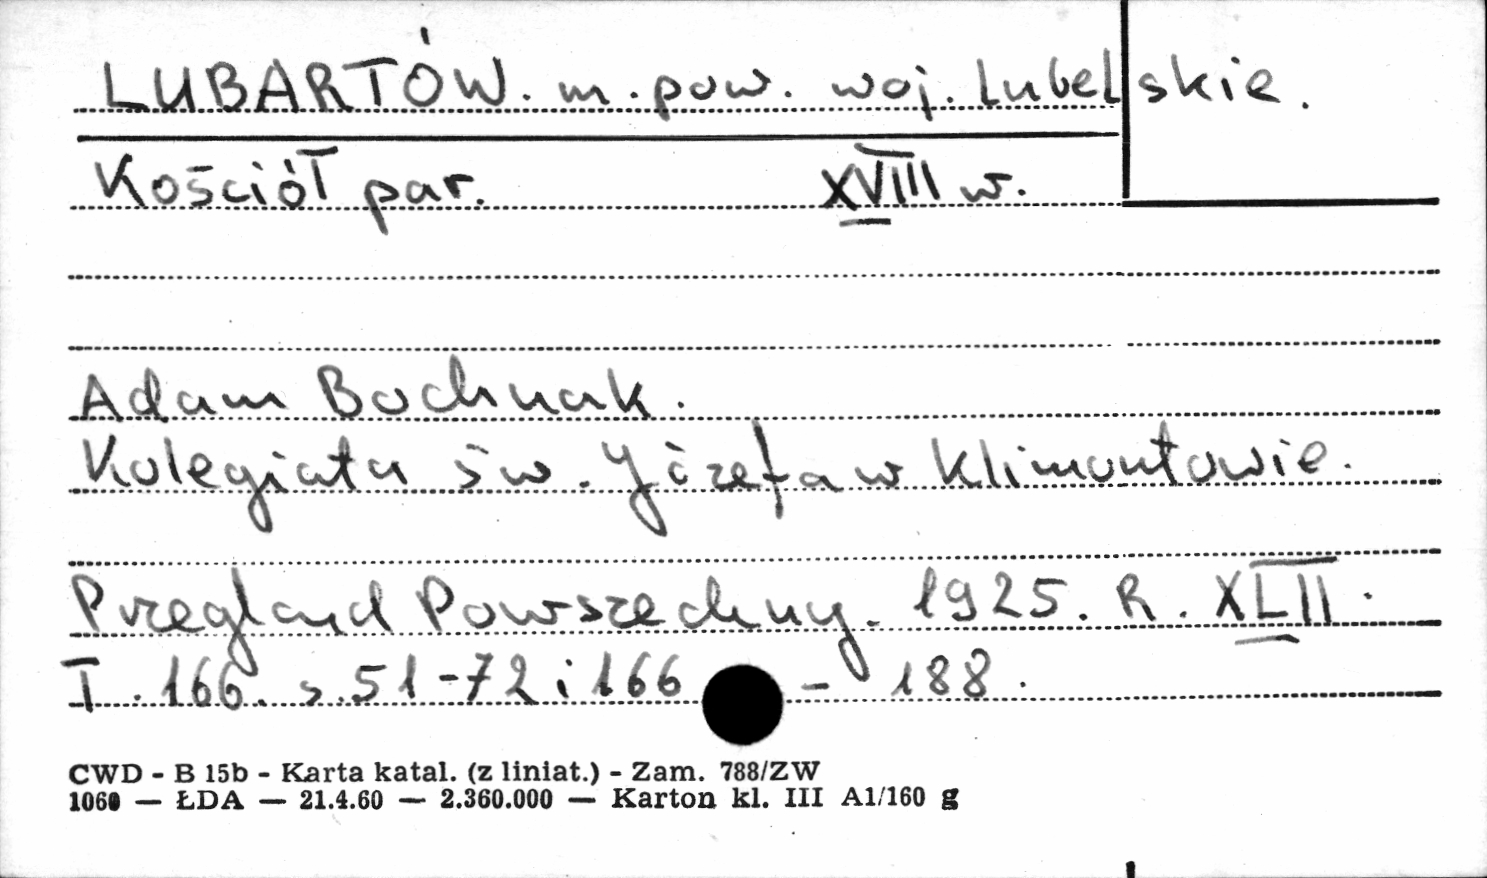 LUBARTÓW. m. pow. woj. Lubelskie.
Kościół par. XVIII w.
Adam Bochnak.
Kolegiata św. Józefa w Klimontowie.
Przegląd Powszechny. 1925. R. XLII.
T. 166. s. 51-72 i 166 - 188.
CWD - B 15b - Karta katal. (z liniat.) - Zam. 788/ZW
1060 — ŁDA — 21.4.60 — 2.360.000 — Karton kl. III A1/160 g